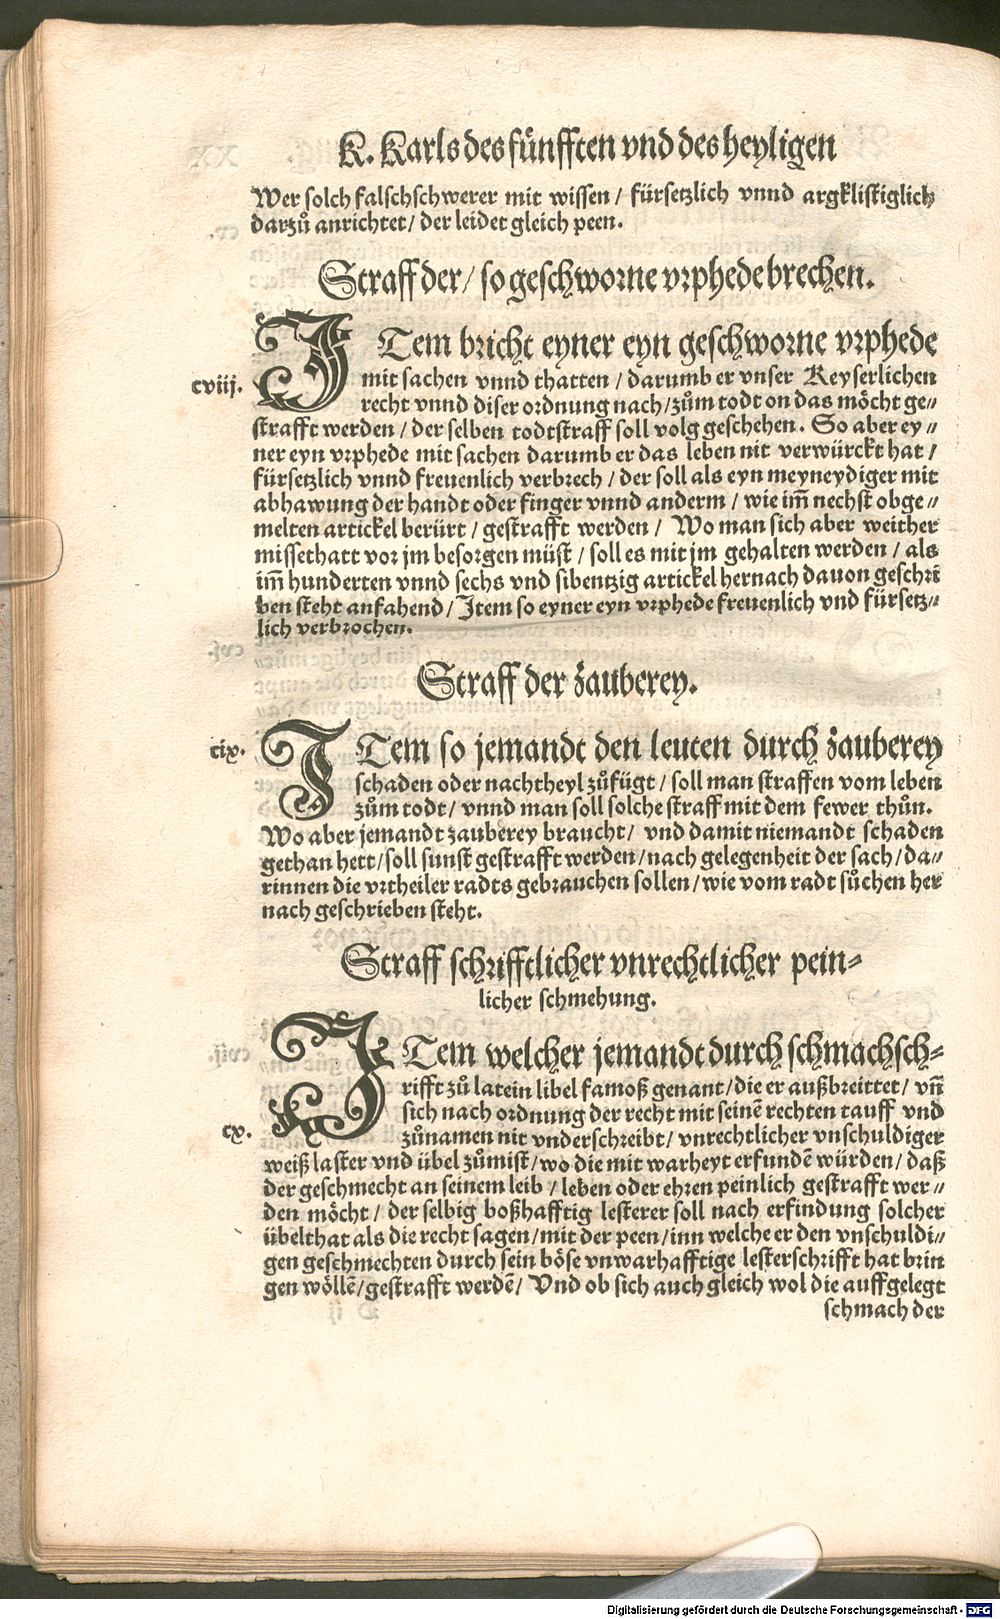 K. Karls des fünfften vnd des heyligen
Wer solch falschschwerer mit wissen / fürsetzlich vnnd argklistiglich
darzů anrichtet / der leidet gleich peen.
Straff der / so geschworne vrphede brechen.
ITem bricht eyner eyn geschworne vrphede
cviij.
mit sachen vnnd thatten / darumb er vnser Keyserlichen
recht vnnd diser ordnung nach / zům todt on das möcht ge⸗
strafft werden / der selben todtstraff soll volg geschehen. So aber ey⸗
ner eyn vrphede mit sachen darumb er das leben nit verwürckt hat /
fürsetzlich vnnd freuenlich verbrech / der soll als eyn meyneydiger mit
abhawung der handt oder finger vnnd anderm / wie im̃ nechst obge⸗
melten artickel berürt / gestrafft werden / Wo man sich aber weither
missethatt vor jm besorgen müst / soll es mit jm gehalten werden / als
im̃ hunderten vnnd sechs vnd sibentzig artickel hernach dauon geschri
ben steht anfahend / Item so eyner eyn vrphede freuenlich vnd fürsetz⸗
lich verbrochen.
Straff der zauberey.
cix.
ITem so jemandt den leuten durch zauberey
schaden oder nachtheyl zůfügt / soll man straffen vom leben
zům todt / vnnd man soll solche straff mit dem fewer thůn.
Wo aber jemandt zauberey braucht / vnd damit niemandt schaden
gethan hett / soll sunst gestrafft werden / nach gelegenheit der sach / da⸗
rinnen die vrtheiler radts gebrauchen sollen / wie vom radt sůchen her
nach geschrieben steht.
Straff schrifftlicher vnrechtlicher pein⸗
licher schmehung.
ITem welcher jemandt durch schmachsch⸗
rifft zů latein libel famoß genant / die er außbreittet / vñ
sich nach ordnung der recht mit seinẽ rechten tauff vnd
cx.
zůnamen nit vnderschreibt / vnrechtlicher vnschuldiger
weiß laster vnd übel zůmist / wo die mit warheyt erfundẽ würden / daß
der geschmecht an seinem leib / leben oder ehren peinlich gestrafft wer⸗
den möcht / der selbig boßhafftig lesterer soll nach erfindung solcher
übelthat als die recht sagen / mit der peen / inn welche er den vnschuldi⸗
gen geschmechten durch sein böse vnwarhafftige lesterschrifft hat brin
gen wöllẽ / gestrafft werdẽ / Vnd ob sich auch gleich wol die auffgelegt
schmach der
Digitalisierung gefördert durch die Deutsche Forschungsgemeinschaft - DFG